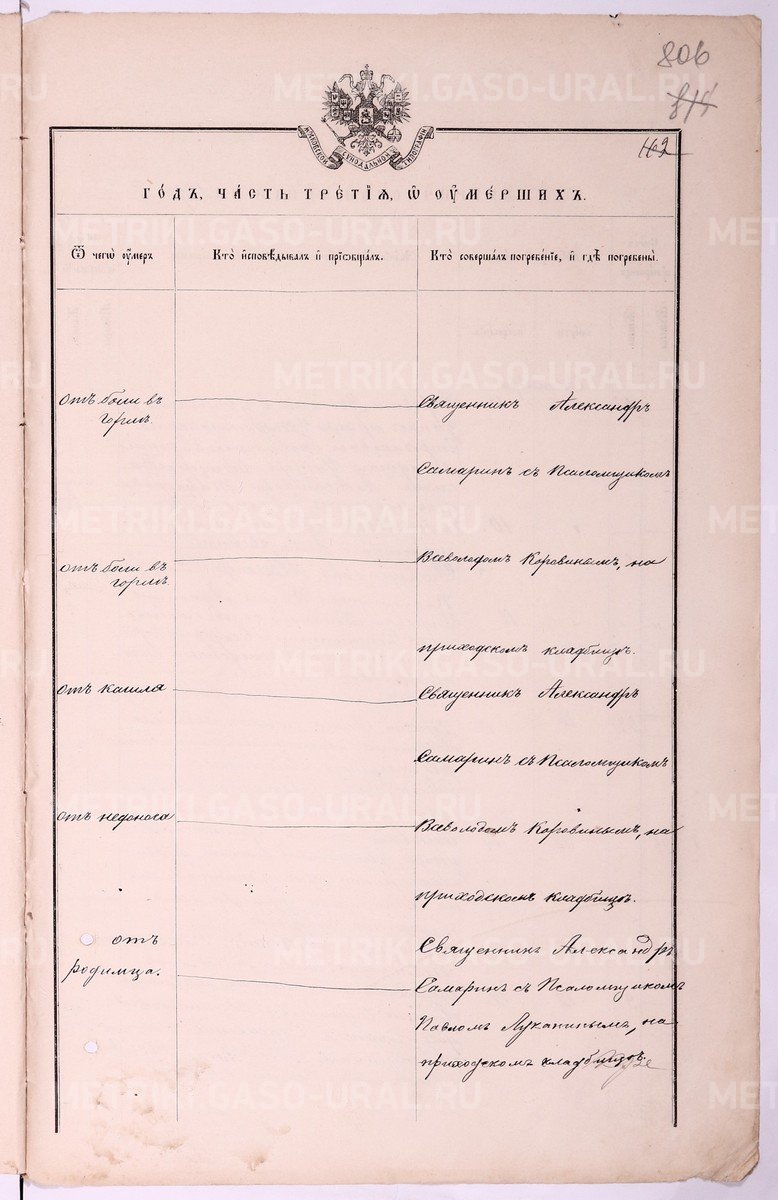 806
162
МОСКОВСКОЙ СѴНОДАЛЬНОЙ ТИПОГРАФІИ
ГО́ДЪ, ЧА́СТЬ ТРЕ́ТІѦ, Ѡ҆ ОУ҆МЕ́РШИХЪ.
Ѿ чегѡ̀ оу҆́меръ
Кто̀ и҆сповѣ́дывалъ и҆ прїѻбща́лъ.
Кто̀ соверша́лъ погребе́нїе, и҆ гдѣ̀ погребены̀.
отъ боли въ
горлѣ.
Священникъ Александръ
Самаринъ съ Псаломщикомъ
отъ боли въ
горлѣ
Всеволодомъ Коровинымъ, на
приходскомъ кладбищѣ.
отъ кашля
Священникъ Александръ
Самаринъ съ Псаломщикомъ
отъ недоноса
Всеволодомъ Коровинымъ, на
приходскомъ кладбищѣ.
отъ
родимца.
Священникъ Александръ
Самаринъ съ Псаломщикомъ
Павломъ Луканинымъ, на
приходскомъ кладбищѣ.
METRIKI.GASO-URAL.RU